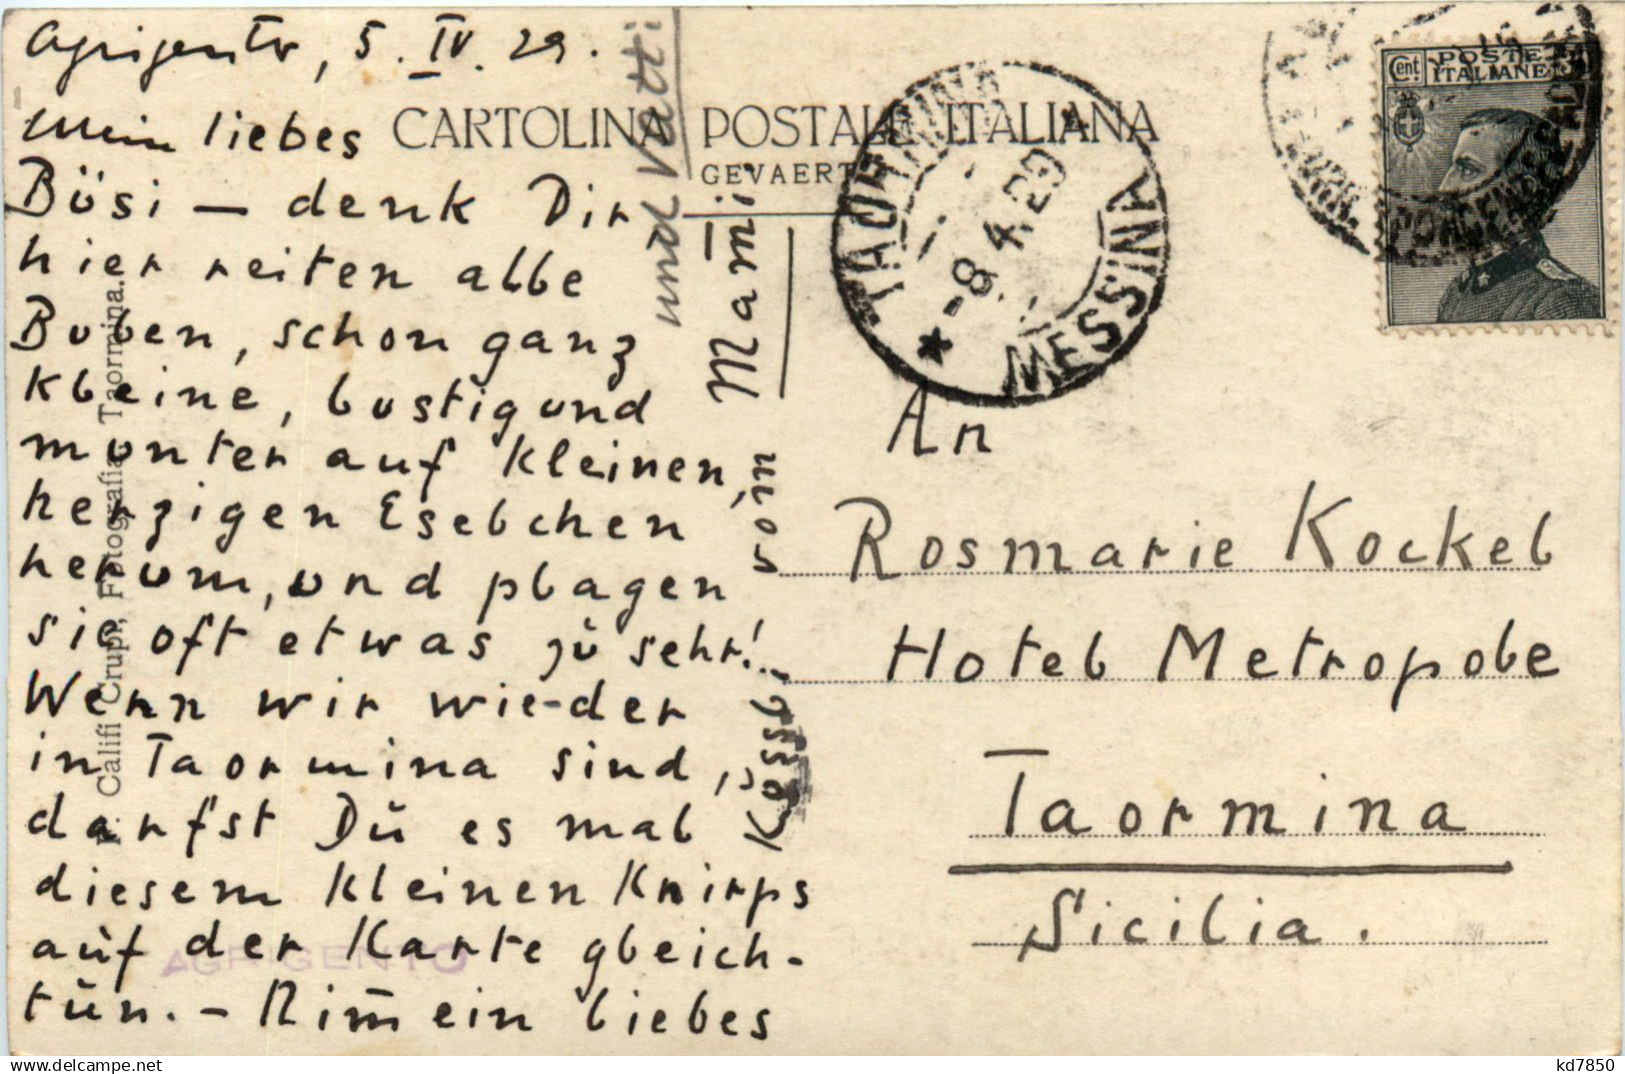 Agrigento, 5. IV. 29.
Mein liebes
Büsi – denk Dir
hier reiten alle
Buben, schon ganz
kleine, lustig und
munter auf kleinen,
herzigen Eselchen
herum, und plagen
sie oft etwas zu sehr!
Wenn wir wie-der
in Taormina sind,
darfst Du es mal
diesem kleinen Knirps
auf der Karte gleich-
tun. – Nim̅ ein liebes
Küssli vom Mam̅i
und Vatti
CARTOLINA POSTALE ITALIANA
GEVAERT
Califi Crupi, Fotografia Taormina.
AGRIGENTO
TAORMINA
-8.4.29
MESSINA
POSTE
ITALIANE
Cent. 30
An
Rosmarie Kockel
Hotel Metropole
Taormina
Sicilia.
kd7850